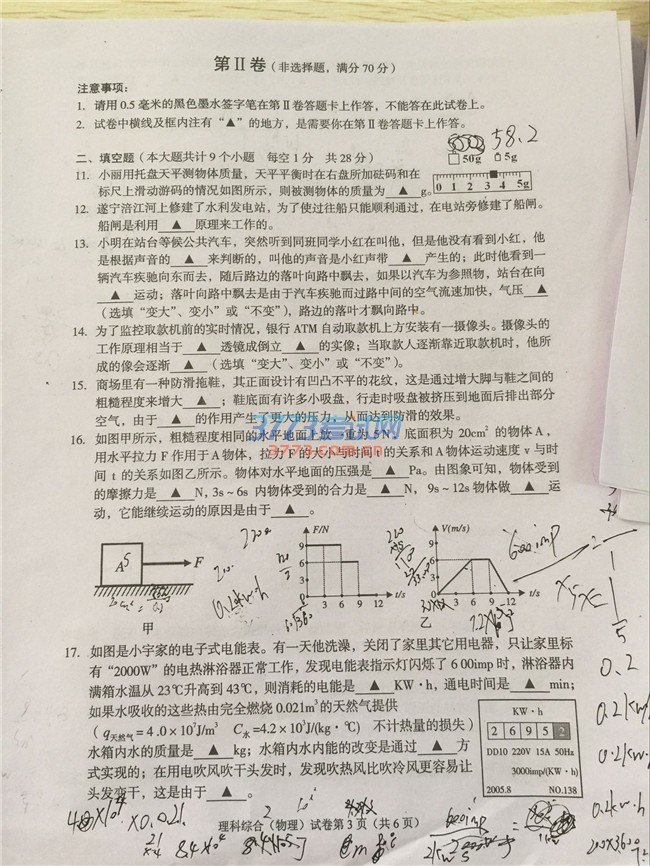 第Ⅱ卷（非选择题，满分70分）
注意事项：
1. 请用0.5毫米的黑色墨水签字笔在第Ⅱ卷答题卡上作答，不能答在此试卷上。
2. 试卷中横线及框内注有“▲”的地方，是需要你在第Ⅱ卷答题卡上作答。
58.2
50g 5g
二、填空题（本大题共计9个小题 每空1分 共28分）
11. 小丽用托盘天平测物体质量，天平平衡时在右盘所加砝码和在
标尺上滑动游码的情况如图所示，则被测物体的质量为 ▲ g。
0 1 2 3 4 5g
12. 遂宁涪江河上修建了水利发电站，为了使过往船只能顺利通过，在电站旁修建了船闸。
船闸是利用 ▲ 原理来工作的。
13. 小明在站台等候公共汽车，突然听到同班同学小红在叫他，但是他没有看到小红，他
是根据声音的 ▲ 来判断的，叫他的声音是小红声带 ▲ 产生的；此时他看到一
辆汽车疾驰向东而去，随后路边的落叶向路中飘去，如果以汽车为参照物，站台在向
▲ 运动；落叶向路中飘去是由于汽车疾驰而过路中间的空气流速加快，气压 ▲
（选填“变大”、变小”或“不变”），路边的落叶才飘向路中。
14. 为了监控取款机前的实时情况，银行ATM自动取款机上方安装有一摄像头。摄像头的
工作原理相当于 ▲ 透镜成倒立 ▲ 的实像；当取款人逐渐靠近取款机时，他所
成的像会逐渐 ▲ （选填“变大”、变小”或“不变”）。
15. 商场里有一种防滑拖鞋，其正面设计有凹凸不平的花纹，这是通过增大脚与鞋之间的
粗糙程度来增大 ▲ ；鞋底面有许多小吸盘，行走时吸盘被挤压到地面后排出部分
空气，由于 ▲ 的作用产生了更大的压力，从而达到防滑的效果。
3773考试网
3773.com.cn
16. 如图甲所示，粗糙程度相同的水平地面上放一重为5N，底面积为20cm²的物体A，
用水平拉力F作用于A物体，拉力F的大小与时间t的关系和A物体运动速度v与时
间t的关系如图乙所示。物体对水平地面的压强是 ▲ Pa。由图象可知，物体受到
的摩擦力是 ▲ N, 3s~6s内物体受到的合力是 ▲ N， 9s~12s物体做 ▲ 运
动，它能继续运动的原因是由于 ▲ 。
A F
F/N
9
6
3
0 3 6 9 12 t/s
V(m/s)
9
6
3
0 3 6 9 12 t/s
600imp
0.2kw·h
甲
乙
17. 如图是小宇家的电子式电能表。有一天他洗澡，关闭了家里其它用电器，只让家里标
有“2000W”的电热淋浴器正常工作，发现电能表指示灯闪烁了6 00imp时，淋浴器内
满箱水温从23℃升高到43℃，则消耗的电能是 ▲ KW·h，通电时间是 ▲ min；
如果水吸收的这些热由完全燃烧0.021m³的天然气提供
（q天然气=4.0×10⁷J/m³ C水=4.2×10³J/(kg·℃) 不计热量的损失）
水箱内水的质量是 ▲ kg；水箱内水内能的改变是通过 ▲ 方
式实现的；在用电吹风吹干头发时，发现吹热风比吹冷风更容易让
头发变干，这是由于 ▲ 。
KW·h
2 6 9 5 2
DD10 220V 15A 50Hz
3000imp/(KW·h)
2005.8 NO.138
0.2
0.2kw·h
理科综合（物理）试卷第3页（共6页）
600imp